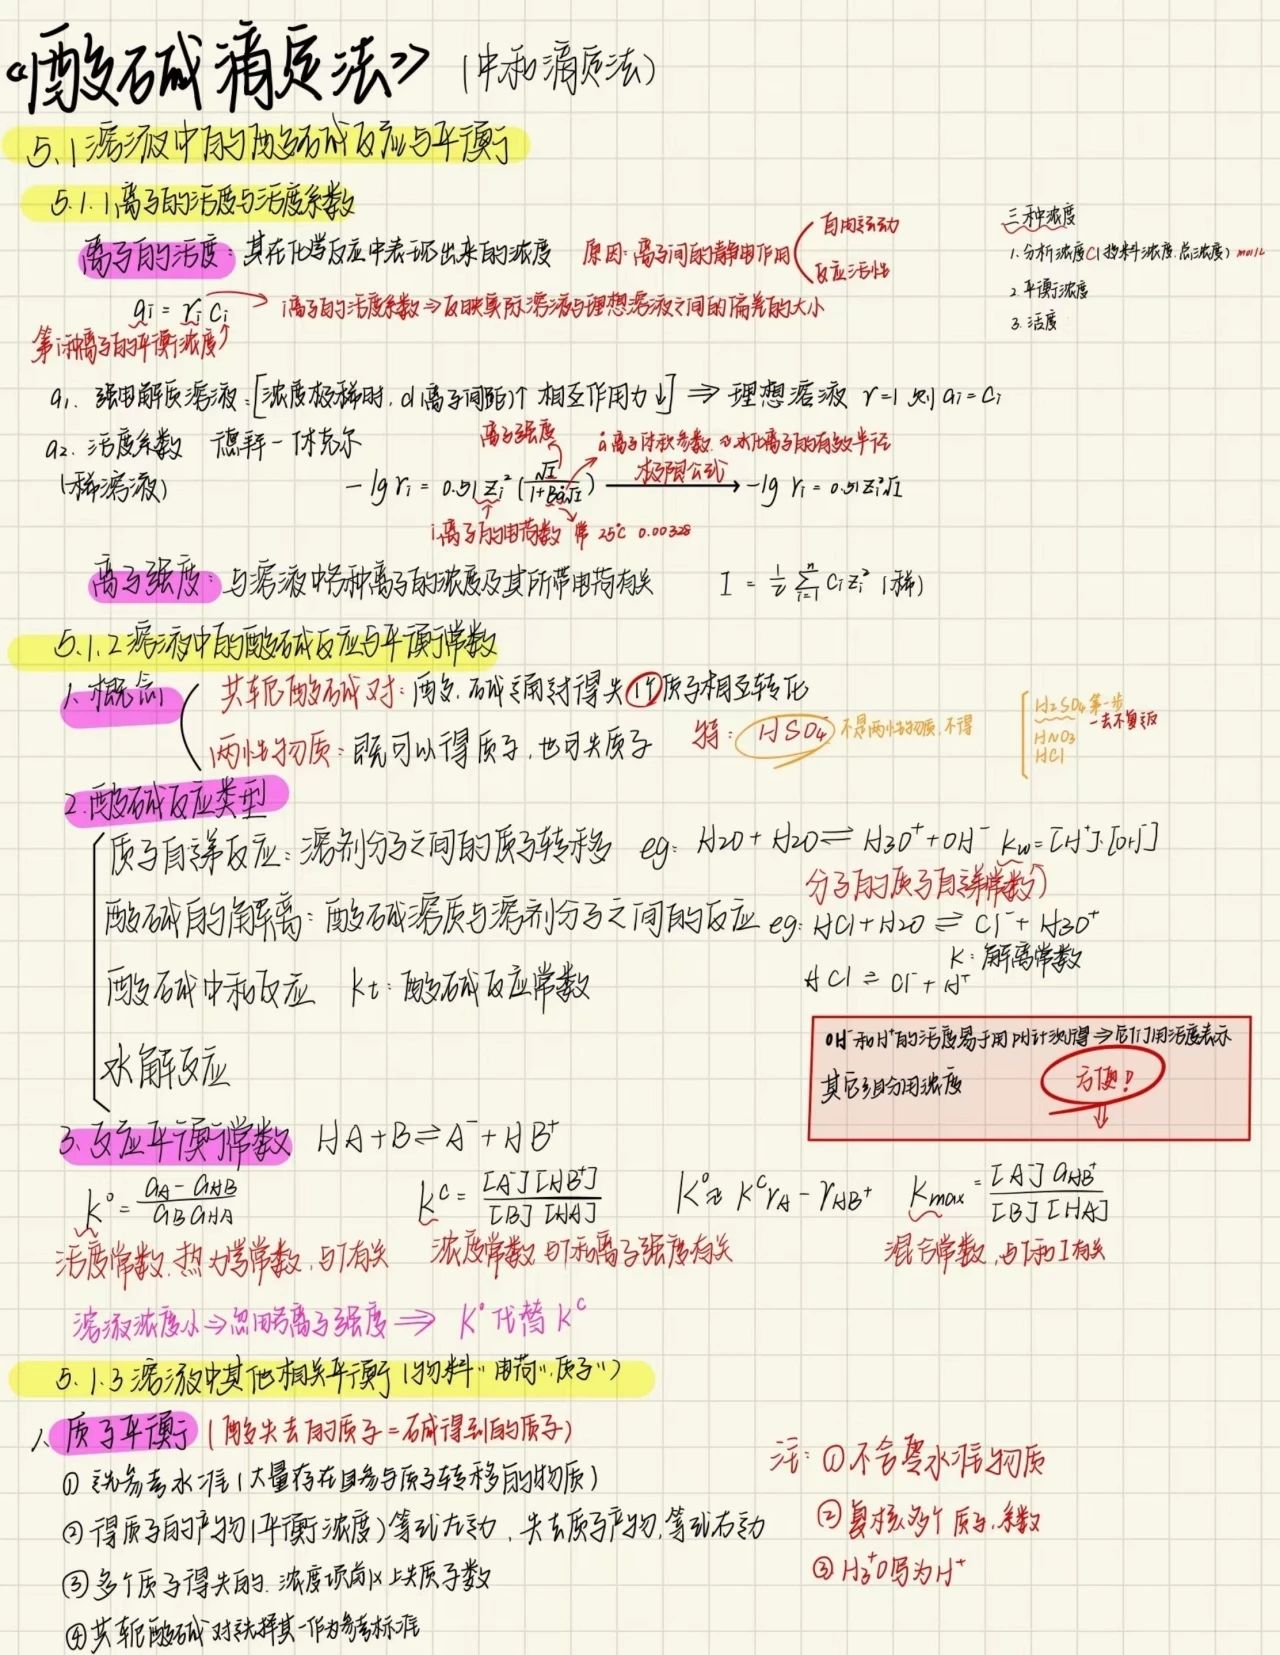 《酸碱滴定法》(中和滴定法)
5.1 溶液中的酸碱反应与平衡
5.1.1 离子的活度与活度系数
离子的活度：其在化学反应中表现出来的浓度 原因：离子间的静电作用
自由运动
反应活性
三种浓度
1.分析浓度C(物料浓度.总浓度) mol/L
2.平衡浓度
3.活度
ai = γi ci → i离子的活度系数⇒反映实际溶液与理想溶液之间的偏差的大小
第i种离子的平衡浓度
a1. 强电解质溶液：[浓度极稀时，d(离子间距)↑ 相互作用力↓] ⇒ 理想溶液 γ=1 则 ai=ci
a2. 活度系数 德拜-休克尔
(稀溶液)
离子强度
å离子体积参数 水化离子的有效半径
-lg γi = 0.51 Zi² (√I / 1+Bå√I) 极限公式 → -lg γi = 0.51Zi²√I
i离子的电荷数 常 25℃ 0.00328
离子强度：与溶液中各种离子的浓度及其所带电荷有关 I = ½ Σ(i=1→n) ciZi² (稀)
5.1.2 溶液中的酸碱反应与平衡常数
1.概念
共轭酸碱对：酸.碱通过得失1个质子相互转化
两性物质：既可以得质子，也可失质子
特：HSO4⁻ 不是两性物质，不得
H2SO4 第一步
一去不复返
HNO3
HCl
2.酸碱反应类型
质子自递反应：溶剂分子之间的质子转移 eg: H2O + H2O ⇌ H3O⁺ + OH⁻ Kw=[H⁺]·[OH⁻]
分子的质子自递常数)
酸碱的解离：酸碱溶质与溶剂分子之间的反应 eg: HCl + H2O ⇌ Cl⁻ + H3O⁺
K：解离常数
HCl ⇌ Cl⁻ + H⁺
酸碱中和反应 Kt：酸碱反应常数
水解反应
OH⁻和H⁺的活度易于用pH计测得⇒它们用活度表示
其它组分用浓度 方便！
3.反应平衡常数 HA + B ⇌ A⁻ + HB⁺
K° = aA⁻ aHB / aB aHA
K^c = [A⁻][HB⁺] / [B][HA]
K°≈ K^c γA⁻ γHB⁺
Kmax = [A⁻] aHB⁺ / [B][HA]
活度常数，热力学常数，与T有关
浓度常数 与T和离子强度有关
混合常数，与T和I有关
溶液浓度小⇒忽略离子强度 ⇒ K°代替K^c
5.1.3 溶液中其他相关平衡(物料" 电荷" 质子")
1、质子平衡 (酸失去的质子=碱得到的质子)
① 选参考水准(大量存在且参与质子转移的物质)
② 得质子的产物(平衡浓度)等式左边，失去质子产物，等式右边
③ 多个质子得失的，浓度项前×上失质子数
④ 共轭酸碱对选择其一作为参考标准
注：①不含零水准物质
② 多个质子，系数
③ H3⁺O写为H⁺